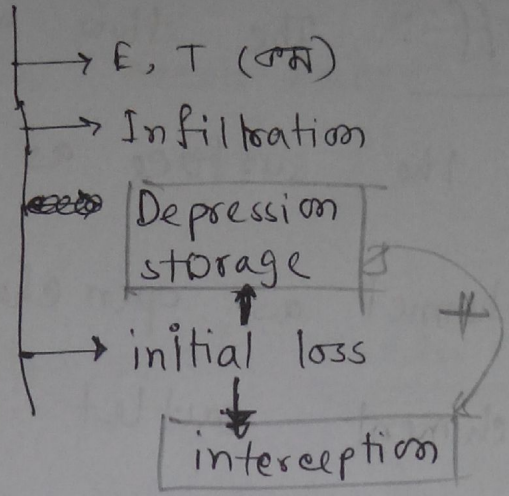 E, T (কম)
Infiltration
Depression
storage
initial loss
interception